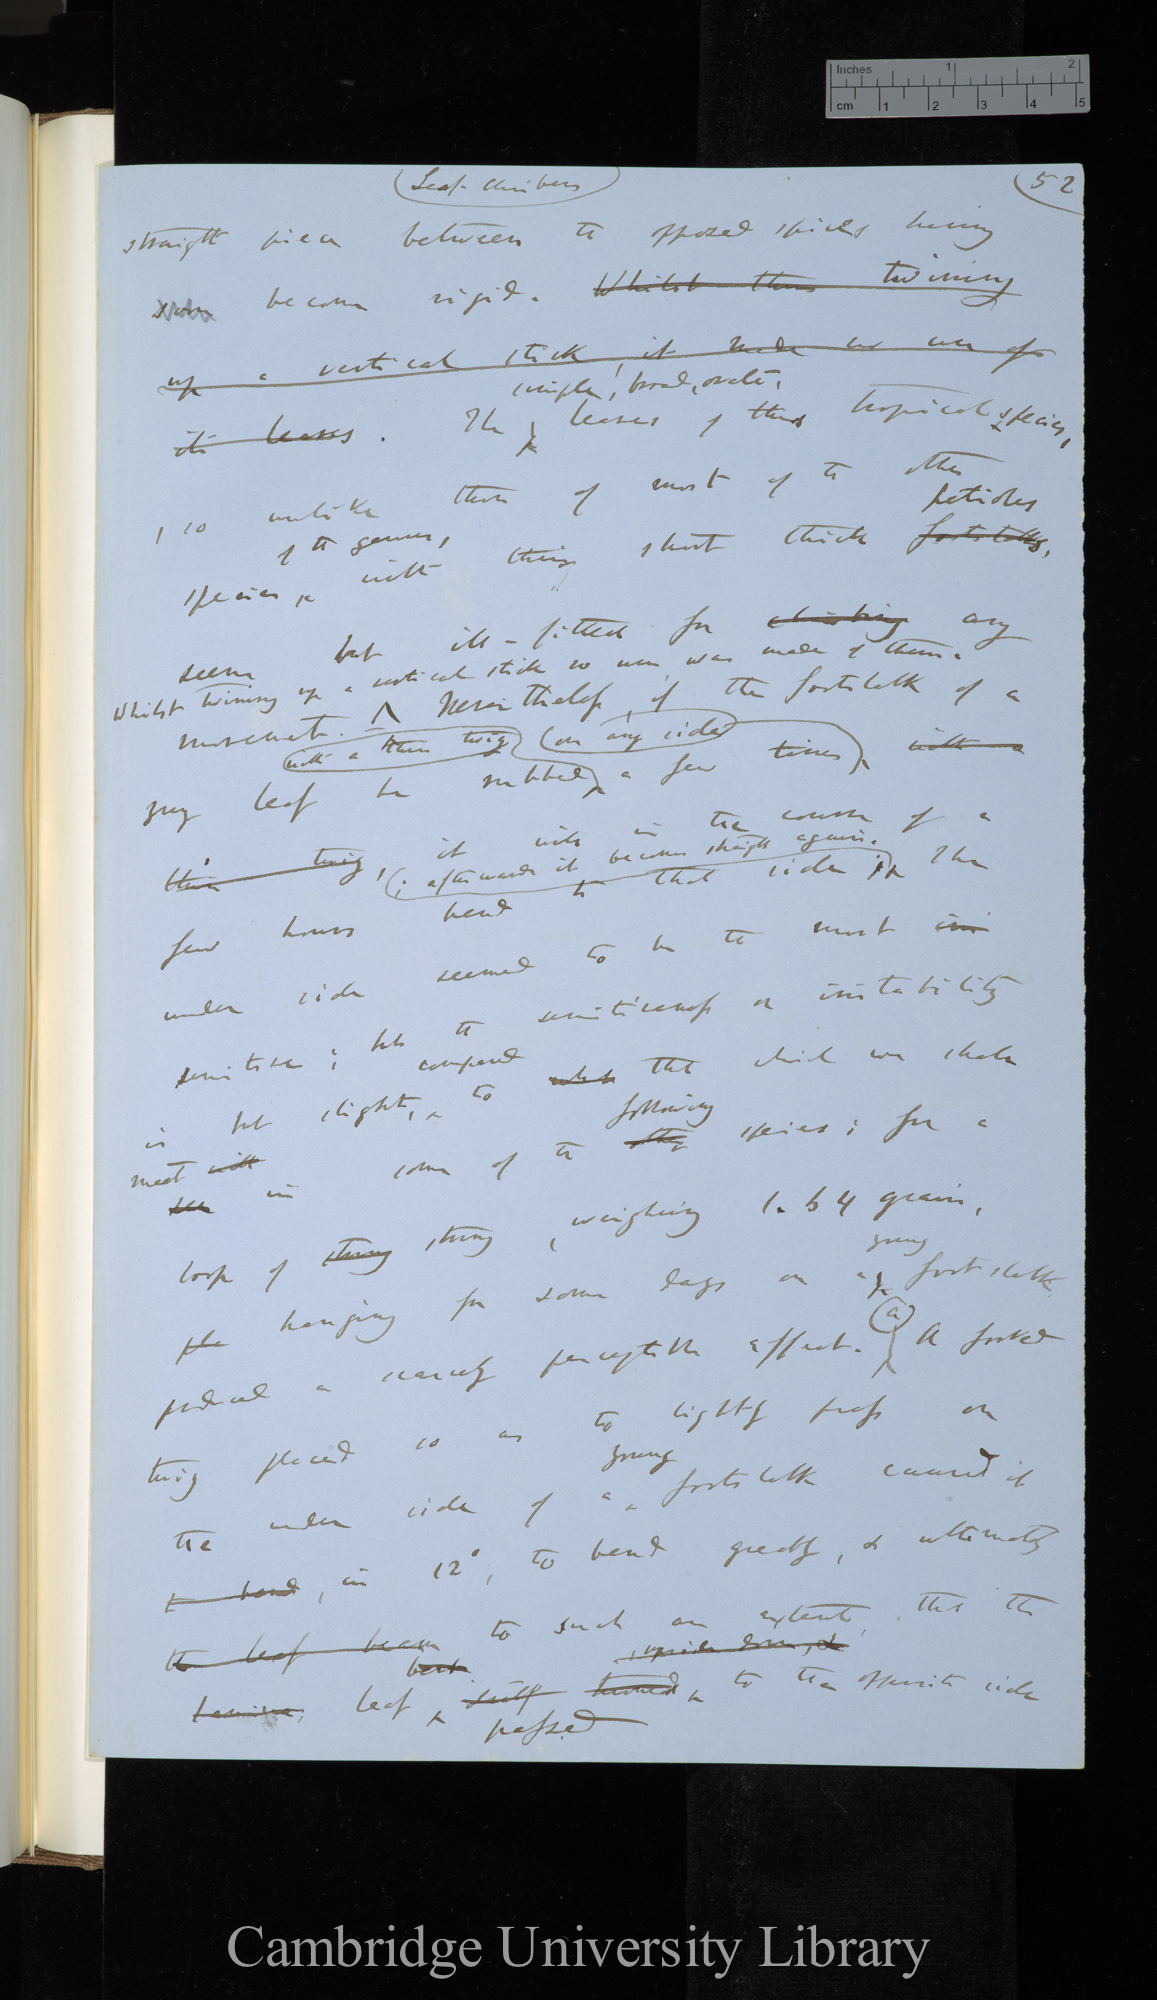 Inches 1 2
cm 1 2 3 4 5
Leaf-climbers 52
straight piece between the opposed spires having
soon become rigid. Whilst thus twining
up a vertical stick it made no use of
simple, broad, ovate,
its leaves. The leaves of this tropical species,
, so unlike those of most of the other
of the genus, petioles
species, with their short thick footstalks,
seem but ill-fitted for climbing any
Whilst twining up a vertical stick no use was made of them.
movement. Nevertheless, if the footstalk of a
with a thin twig (on any side)
young leaf be rubbed a few times with a
thin twig, it will in the course of a
(; afterwards it becomes straight again.
few hours bend to that side; The
under side seemed to be the most
sensitive; but the sensitiveness or irritability
compared
is but slight, to what that which we shall
meet with following
see in some of the other species; for a
loop of string string, weighing 1.64 grain,
young
hanging for some days on a footstalk
(a)
produced a scarcely perceptible effect. A forked
twig placed so as to lightly press on
young
the under side of a footstalk caused it
to bend, in 12°, to bend greatly, & ultimately
the leaf became to such an extent that the
bent upside down, &
lamina, leaf itself turned to the opposite side
passed
Cambridge University Library